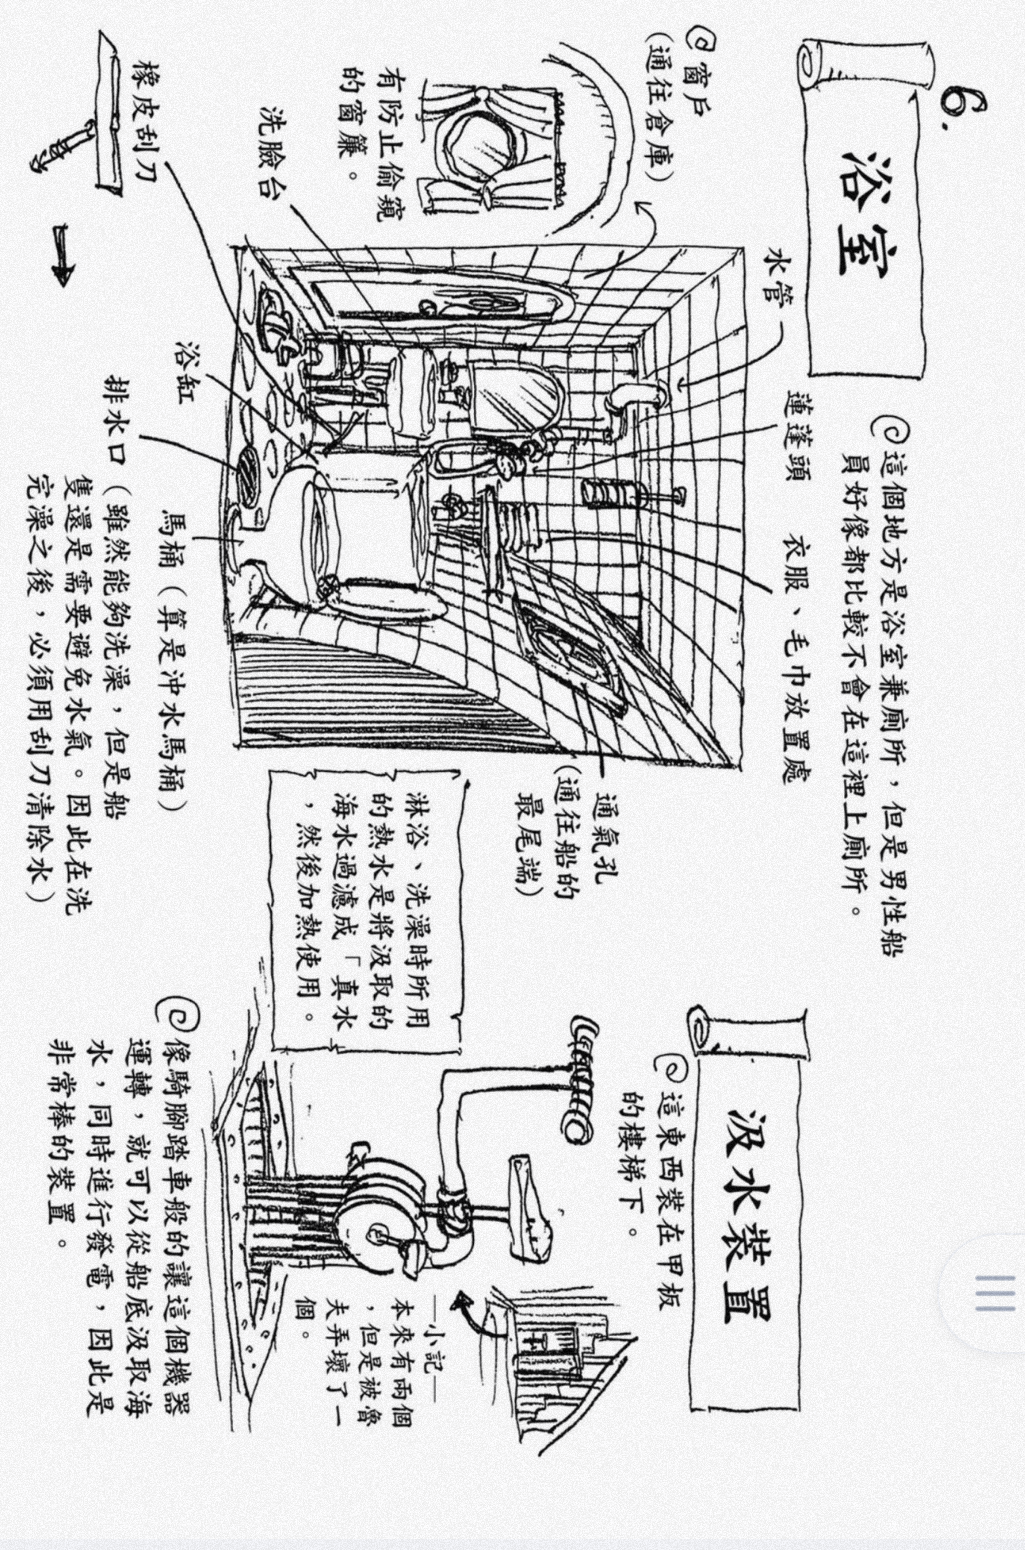 6.
浴室
這個地方是浴室兼廁所，但是男性船
員好像都比較不會在這裡上廁所。
窗戶
（通往倉庫）
有防止偷窺
的窗簾。
水管
蓮蓬頭
衣服、毛巾放置處
洗臉台
橡皮刮刀
浴缸
排水口
（雖然能夠洗澡，但是船
隻還是需要避免水氣。因此在洗
完澡之後，必須用刮刀清除水）
馬桶（算是沖水馬桶）
通氣孔
（通往船的
最尾端）
淋浴、洗澡時所用
的熱水是將汲取的
海水過濾成「真水
，然後加熱使用。
汲水裝置
這東西裝在甲板
的樓梯下。
—小記—
本來有兩個
，但是被魯
夫弄壞了一
個。
像騎腳踏車般的讓這個機器
運轉，就可以從船底汲取海
水，同時進行發電，因此是
非常棒的裝置。